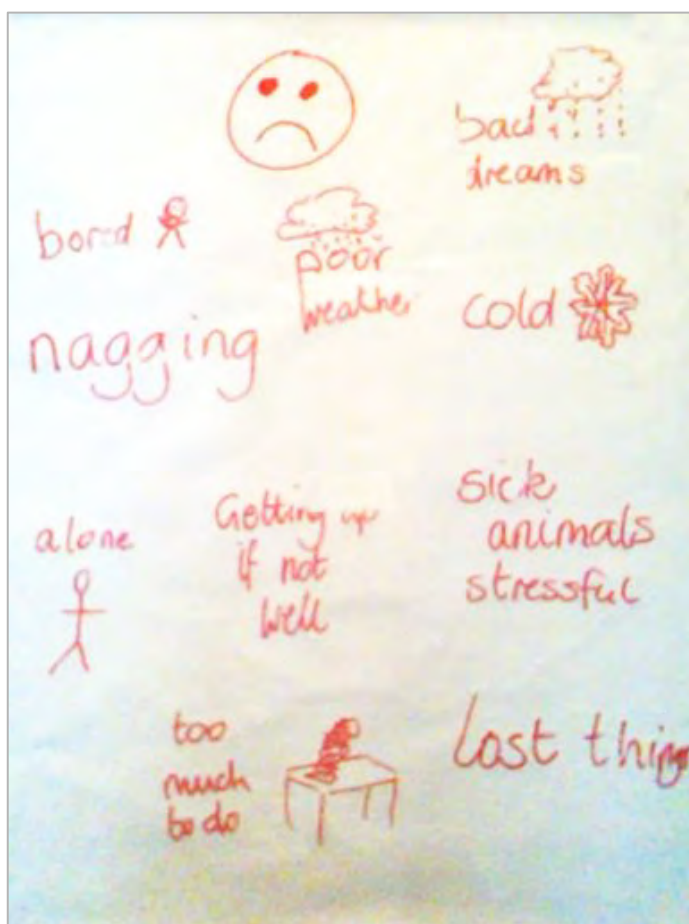 bad
dreams
bored
poor
weather
cold
nagging
alone
Getting up
if not
well
sick
animals
stressful
too
much
to do
lost things